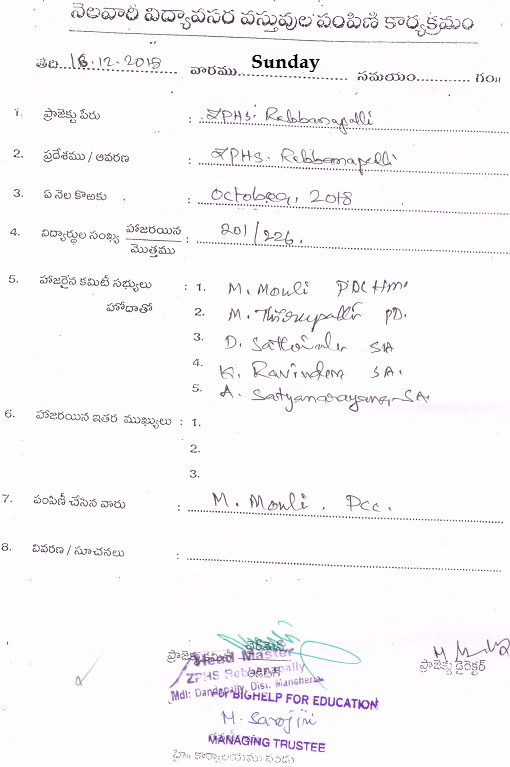 నెలవారీ విద్యావసర వస్తువుల పంపిణి కార్యక్రమం
తేది 16.12-2018 వారము Sunday సమయం............ గం॥
1. ప్రాజెక్టు పేరు : ZPHS. Rebbanapalli
2. ప్రదేశము / ఆవరణ : ZPHS. Rebbanapalli
3. ఏ నెల కొఱకు : October, 2018
4. విద్యార్థుల సంఖ్య హాజరయిన / మొత్తము : 201/226.
5. హాజరైన కమిటీ సభ్యులు : 1. M. Mouli PDC Hm.
హోదాతో 2. M. Thirupathi PD.
3. D. SA
4. K. Ravinder SA.
5. A. Satyanarayana, SA.
6. హాజరయిన ఇతర ముఖ్యులు : 1.
2.
3.
7. పంపిణీ చేసిన వారు : M. Mouli. Pcc.
8. వివరణ / సూచనలు :
ప్రాజెక్టు కమిటీ
Head Master
ZPHS Rebbanapally
Mdl: Dandepally, Dist. Mancherial
ప్రాజెక్టు డైరెక్టర్
For BIGHELP FOR EDUCATION
M. Sarojini
MANAGING TRUSTEE